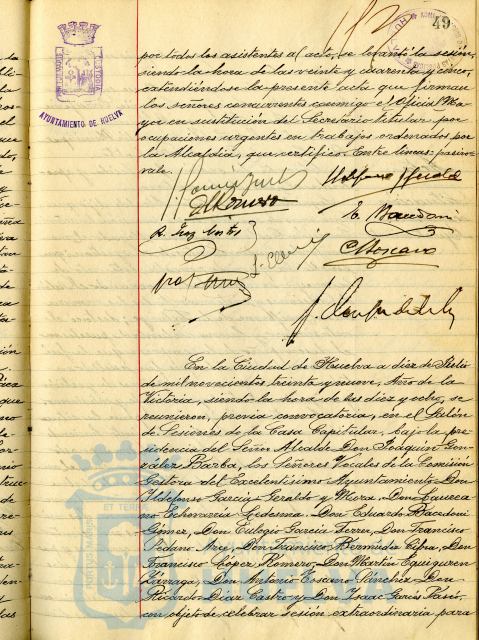 49
AYUNTAMIENTO DE HUELVA
por todos los asistentes al acto, se levantó la sesión,
siendo la hora de las veinte y cuarenta y cinco,
extendiéndose la presente acta que firman
los señores concurrentes conmigo el Oficial Ma-
yor en sustitución del Secretario titular por
ocupaciones urgentes en trabajos ordenados por
la Alcaldía, que certifico. Entre líneas = pasivo =
vale.
E. Bacedoni
A. Toscano
En la Ciudad de Huelva a diez de
de mil novecientos treinta y nueve, Año de la
Victoria, siendo la hora de las diez y ocho, se
reunieron, previa convocatoria, en el Salón
de Sesiones de la Casa Capitular, bajo la pre-
sidencia del Señor Alcalde Don Joaquín Gon-
zález Barba, los Señores Vocales de la Comisión
Gestora del Excelentísimo Ayuntamiento Don
Ildefonso García Geraldo y Mora, Don Laurea-
no Echevarría Ledesma, Don Eduardo Bacedoni
Gómez, Don Eulogio García Ferrer, Don Francisco
Pedano Arey, Don Francisco Bermúdez Cifra, Don
Francisco López Romero, Don Martín Eguiguren
Lázaga, Don Antonio Toscano Sánchez, Don
Ricardo Díaz Castro y Don Isaac Garcés
con objeto de celebrar sesión extraordinaria para